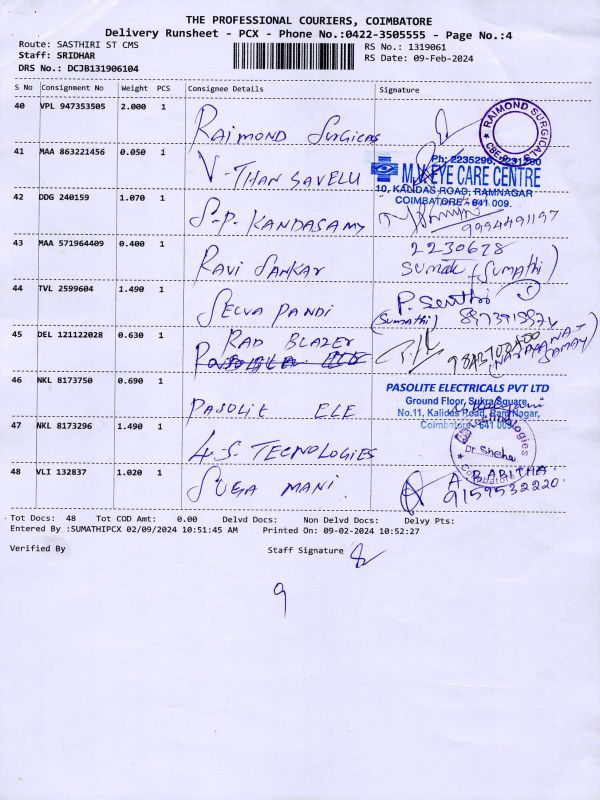 THE PROFESSIONAL COURIERS, COIMBATORE
Delivery Runsheet - PCX - Phone No.:0422-3505555 - Page No.:4
Route: SASTHIRI ST CMS
RS No.: 1319061
Staff: SRIDHAR
RS Date: 09-Feb-2024
DRS No.: DCJB131906104
S No Consignment No Weight PCS Consignee Details Signature
40 VPL 947353505 2.000 1 Raimond Surgicals
RAIMOND SURGICAL
41 MAA 863221456 0.050 1 V. THANGAVELU
Ph: 2235296, 2231200
M.V. EYE CARE CENTRE
10, KALIDAS ROAD, RAMNAGAR
COIMBATORE - 641 009.
42 DDG 240159 1.070 1 S.P. KANDASAMY
9994491197
43 MAA 571964409 0.400 1 RAVI SANKAR
2230678
(Sumathi)
44 TVL 2599604 1.490 1 SELVA PANDI
P. Senthi
(Sumathi)
45 DEL 121122028 0.630 1 RAD BLAZER
46 NKL 8173750 0.690 1 PASOLIT ELE
PASOLITE ELECTRICALS PVT LTD
Ground Floor, Sukra Square,
No.11, Kalidas Road, Ram Nagar,
Coimbatore - 641 009.
47 NKL 8173296 1.490 1 4.S. TECNOLOGIES
Dt. Sneha
Coimbatore
48 VLI 132837 1.020 1 SUGA MANI
A. BABITHA
9159532220
Tot Docs: 48 Tot COD Amt: 0.00 Delvd Docs: Non Delvd Docs: Delvy Pts:
Entered By :SUMATHIPCX 02/09/2024 10:51:45 AM Printed On: 09-02-2024 10:52:27
Verified By Staff Signature
9